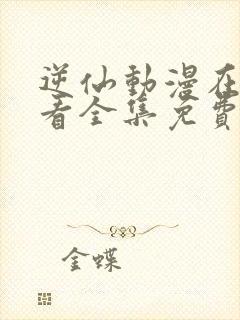 逆仙動漫在
看全集免費
金蝶